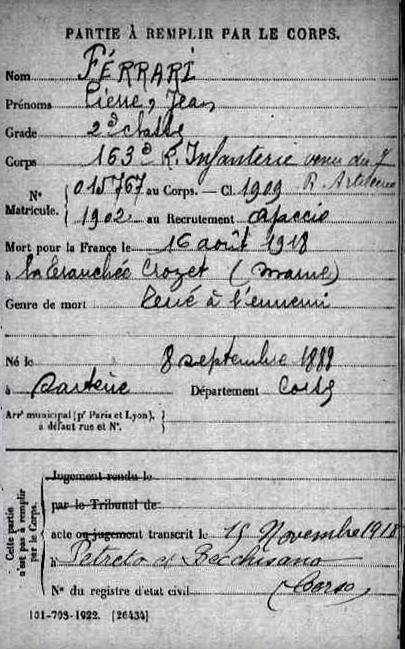 PARTIE À REMPLIR PAR LE CORPS.
Nom FÉRRARI
Prénoms Pierre, Jean
Grade 2e classe
Corps 163e R. Infanterie venu du 7
R. Artillerie
N° Matricule. 015767 au Corps. — Cl. 1909
1902 au Recrutement Ajaccio
Mort pour la France le 16 août 1918
à la tranchée Crozet (Marne)
Genre de mort Tué à l'ennemi
Né le 8 septembre 1889
à Sartène Département Corse
Arrt municipal (pr Paris et Lyon),
à défaut rue et N°.
Cette partie n'est pas à remplir par le Corps.
Jugement rendu le
par le Tribunal de
acte ou jugement transcrit le 15 Novembre 1918
à Petreto et Bicchisano
N° du registre d'état civil (Corse)
101-703-1922. [26434]